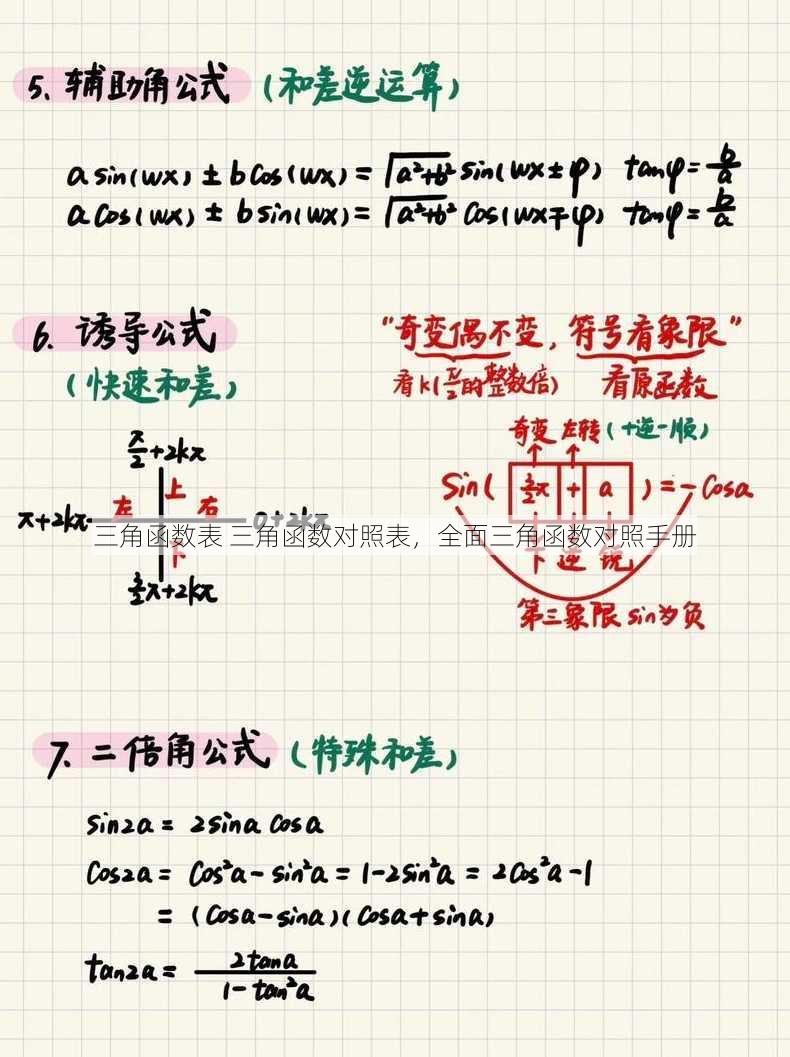 5. 辅助角公式（和差逆运算）
a sin(wx) ± b cos(wx) = √a²+b² sin(wx±φ) tanφ = b/a
a cos(wx) ± b sin(wx) = √a²+b² cos(wx∓φ) tanφ = b/a
6. 诱导公式
（快速和差）
"奇变偶不变，符号看象限"
看k(π/2的整数倍) 看原函数
π/2+2kπ
上
π+2kπ 左 右 0+2kπ
下
3/2π+2kπ
奇变 左转（+逆-顺）
Sin( 3/2π + a ) = - Cosa
下 逆 锐
第三象限 sin为负
三角函数表 三角函数对照表，全面三角函数对照手册
7. 二倍角公式（特殊和差）
Sin2a = 2sina cosa
Cos2a = Cos²a - sin²a = 1-2sin²a = 2Cos²a-1
= (Cosa-sina)(Cosa+sina)
tan2a = 2tana / 1-tan²a